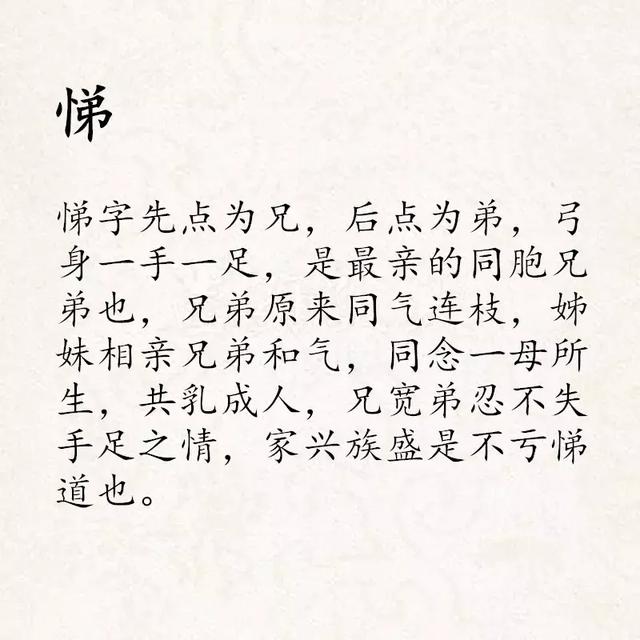 悌
悌字先点为兄，后点为弟，弓
身一手一足，是最亲的同胞兄
弟也，兄弟原来同气连枝，姊
妹相亲兄弟和气，同念一母所
生，共乳成人，兄宽弟忍不失
手足之情，家兴族盛是不亏悌
道也。